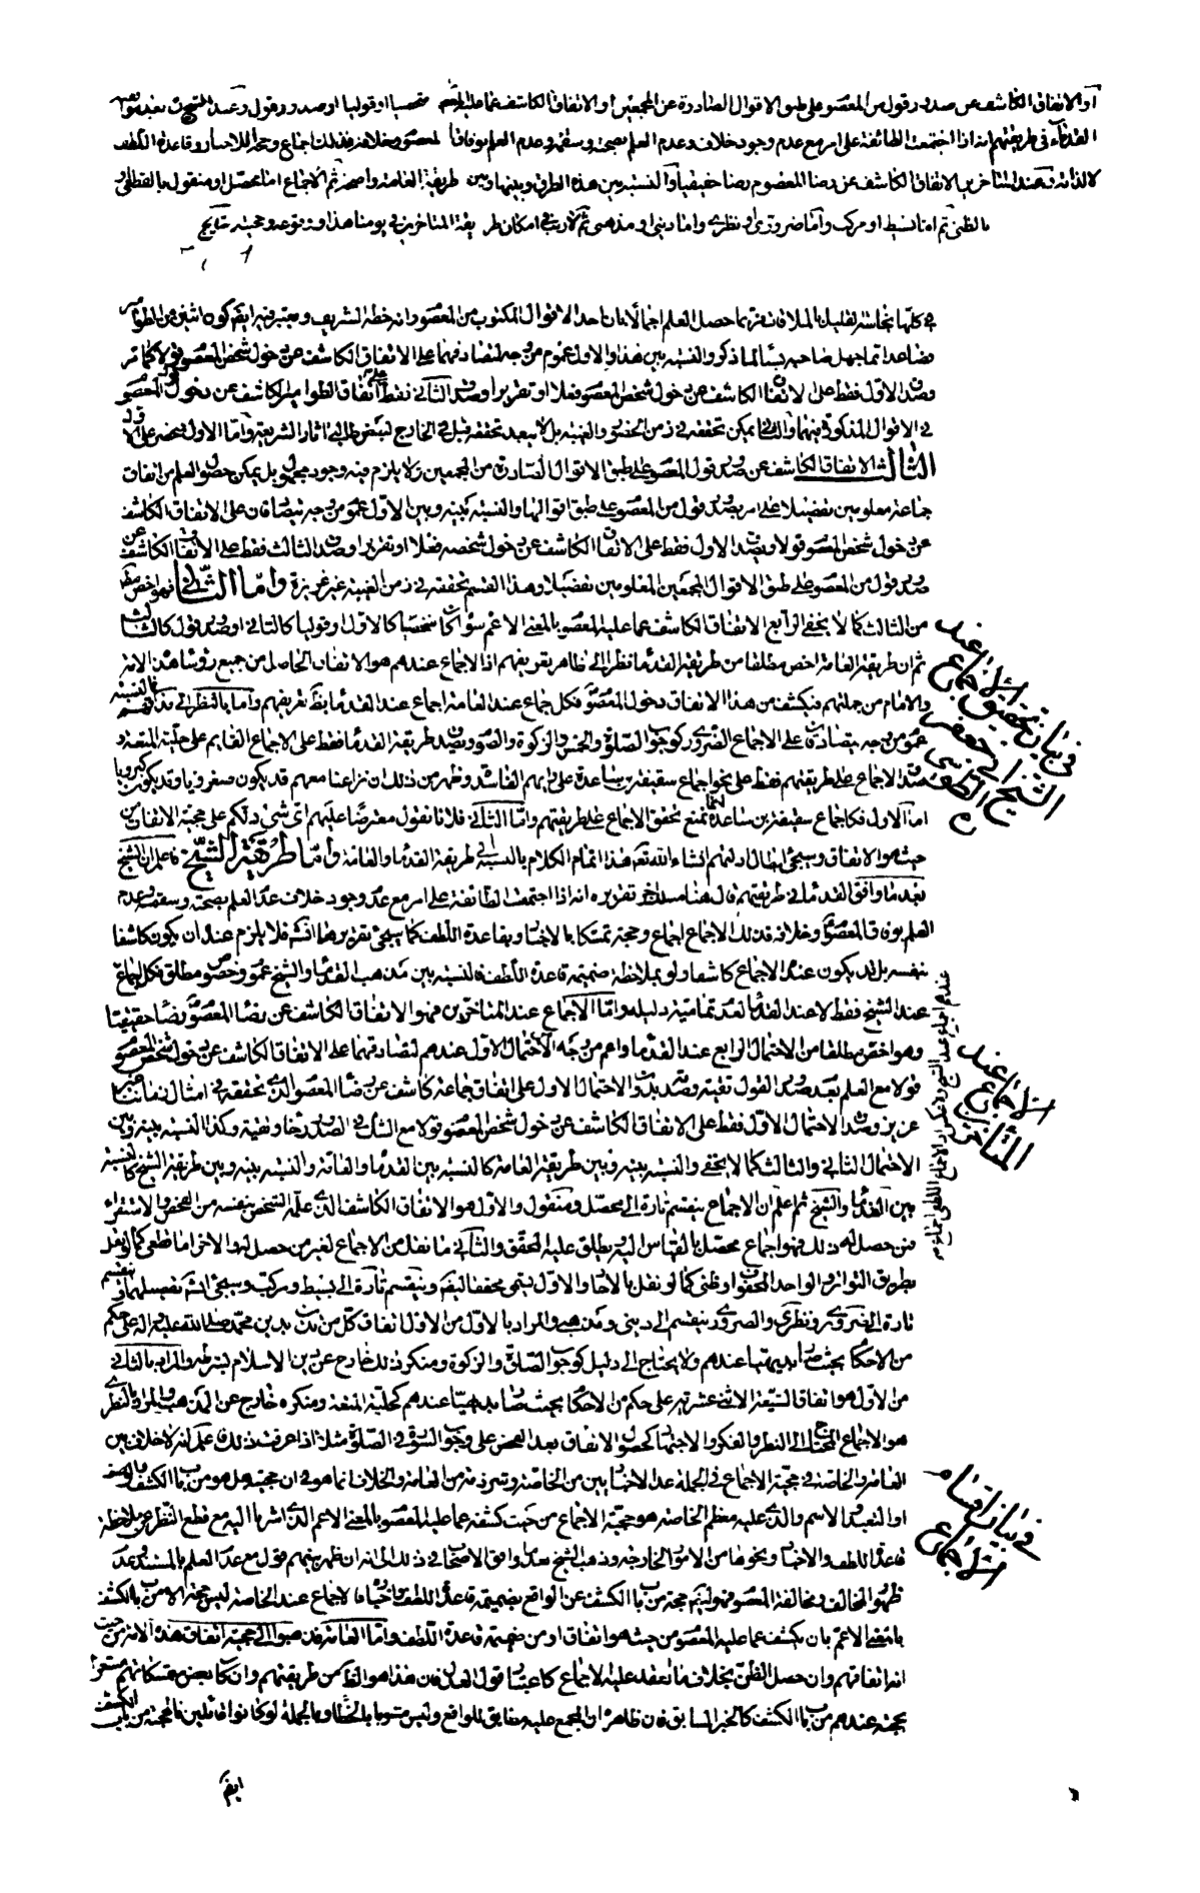 او الاتفاق الكاشف عن صدور قول من المعصوم على طبق الاقوال الصادرة عن المجمعين او الاتفاق الكاشف عما عليه المعصوم شخصيا او قوليا او صدور قول وعند الشيخ بعد موافقة
القدماء في طريقتهم انه اذا اجتمعت الطائفة على امر مع عدم وجود خلاف وعدم العلم بصحته وسقمه وعدم العلم بوفاق المعصوم وخلافه فذلك اجماع وحجة للاخبار وقاعدة اللطف
لا لذاته وعند المتاخرين الاتفاق الكاشف عن رضا المعصوم رضا حقيقيا والنسبة بين هذه الطرق وبينها وبين طريقة العامة واضحة ثم الاجماع اما محصل او منقول بالقطعي او
بالظني ثم اما بسيط او مركب واما ضروري او نظري واما ديني او مذهبي ثم لا ريب في امكان طريقة المتاخرين في يومنا هذا ووقوعه وحجيته
في كلها نجاسة القليل بالملاقات فربما حصل العلم اجمالا بان احد الاقوال المكتوب من المعصوم وانه خطه الشريف ويعتبر فيه ايضا كون اثنين من الطوامير
فصاعدا مما جهل صاحبه لما ذكر والنسبة بين هذا والاول عموم من وجه لتصادقهما على الاتفاق الكاشف عن دخول شخص المعصوم قولا كما مر
وصدق الاول فقط على الاتفاق الكاشف عن دخول شخص المعصوم فعلا او تقريرا وصدق الثاني فقط على اتفاق الطوامير الكاشف عن دخول قول المعصوم
في الاقوال المذكورة فيها والثاني يمكن تحققه في زمن الحضور والغيبة بل لا يبعد تحققه قبل في الخارج لبعض طالبي اثار الشريعة واما الاول فيختص على الاول
الثالث الاتفاق الكاشف عن صدور قول المعصوم على طبق الاقوال الصادرة من المجمعين ولا يلزم فيه وجود مجهول بل يمكن حصول العلم من اتفاق
جماعة معلومين تفصيلا على امر بصدور قول من المعصوم على طبق اقوالها والنسبة بينه وبين الاول عموم من وجه يتصادقان على الاتفاق الكاشف
عن دخول شخص المعصوم قولا وصدق الاول فقط على الاتفاق الكاشف عن دخول شخصه فعلا او تقريرا وصدق الثالث فقط على الاتفاق الكاشف عن
صدور قول من المعصوم على طبق الاقوال المجمعين المعلومين تفصيلا وهذا القسم تحققه في زمن الغيبة غير عزيزة واما الثاني فهو اخص مطلقا
من الثالث كما لا يخفى الرابع الاتفاق الكاشف عما عليه المعصوم بالمعنى الاعم سواء كان شخصيا كالاول او قوليا كالثاني او صدور قول كالثالث
ثم ان طريقة العامة اخص مطلقا من طريقة القدماء نظرا الى ظاهر تعريفهم اذ الاجماع عندهم هو الاتفاق الحاصل من جميع رؤساء هذا الامر
والامام من جملتهم فيكشف من هذا الاتفاق دخول المعصوم فكل اجماع عند العامة اجماع عند القدماء بظاهر تعريفهم واما بالنظر الى مذاقهم فالنسبة
عموم من وجه يتصادقان على الاجماع الضروري كوجوب الصلوة والخمس والزكوة والصوم وصدق طريقة القدماء فقط على الاجماع القايم على حلية المتعة و
صدق الاجماع على طريقتهم فقط على نحو اجماع سقيفة بني ساعدة على رأيهم الفاسد وظهر من ذلك ان نزاعنا معهم قد يكون صغرويا وقد يكون كبرويا
اما الاول فكاجماع سقيفة بني ساعدة لمنع تحقق الاجماع على طريقتهم واما الثاني فلانا نقول معترضا عليهم اي شيء دلكم على حجية الاتفاق من
حيث هو الاتفاق وسيجيء ابطال ادلتهم انشاء الله تع هذا تمام الكلام بالنسبة الى طريقة القدماء والعامة واما طريقة الشيخ فاعلم ان الشيخ
بعد ما وافق القدماء في طريقتهم قال هنا مسلك اخر تقريره انه اذا اجتمعت الطائفة على امر مع عدم وجود خلاف عدم العلم بصحته وسقمه وعدم
العلم بوفاق المعصوم وخلافه فذلك الاجماع اجماع وحجة تمسكا بالاخبار وبقاعدة اللطف كما سيجيء تقريرها انشاء فلا يلزم عنده ان يكون كاشفا
بنفسه بل قد يكون عنده الاجماع كاشفا ولو بملاحظة ضميمة قاعدة اللطف فالنسبة بين مذهب القدماء والشيخ عموم وخصوص مطلق فكل اجماع
عند الشيخ فقط لا عند القدماء لعدم تمامية دليله واما الاجماع عند المتاخرين فهو الاتفاق الكاشف عن رضا المعصوم رضا حقيقيا
وهو اخص مطلقا من الاحتمال الرابع عند القدماء واعم من وجه الاحتمال الاول عندهم لتصادقهما على الاتفاق الكاشف عن دخول شخص المعصوم
قولا مع العلم بعدم صدور القول تقية وصدق بدون الاحتمال الاول على اتفاق جماعة كاشف عن رضا المعصوم الذي تحققه في امثال زماننا غير
عزيز وصدق الاحتمال الاول فقط على الاتفاق الكاشف عن دخول شخص المعصوم قولا مع الشك في الصدور رضا وتقية وكذا النسبة بينه وبين
الاحتمال الثاني والثالث كما لا يخفى والنسبة بينه وبين طريقة العامة كالنسبة بين القدماء والعامة والنسبة بينه وبين طريقة الشيخ كالنسبة
بين القدماء والشيخ ثم اعلم ان الاجماع ينقسم تارة الى محصل ومنقول والاول هو الاتفاق الكاشف الذي علمه الشخص بنفسه من الفحص والاستقراء
فمن حصل له ذلك فهو اجماع محصل بالقياس اليه ويطلق عليه المحقق والثاني ما نقل من الاجماع لغير من حصل له والاخر اما قطعي كما لو نقل
بطريق التواتر والواحد المحفوف او ظني كما لو نقل بالاحاد والاول يسمى محققا ايضا وينقسم تارة الى بسيط ومركب وسيجيء انشاء تفصيلهما وينقسم
تارة الى ضروري ونظري والضروري ينقسم الى ديني ومذهبي والمراد بالاول من الاول اتفاق كل من تدين بدين محمد صلى الله عليه واله على حكم
من الاحكام بحيث صار بديهيا عندهم ولا يحتاج الى دليل كوجوب الصلوة والزكوة ومنكر ذلك خارج عن دين الاسلام والمراد بالثاني
من الاول هو اتفاق الشيعة الاثنى عشرية على حكم من الاحكام بحيث صار بديهيا عندهم كحلية المتعة ومنكره خارج عن المذهب والمراد بالنظري
هو الاجماع المحتاج الى النظر والفكر والاجتهاد كحصول الاتفاق بعد الفحص على وجوب السورة في الصلوة مثلا اذا عرفت ذلك فاعلم انه لا خلاف بين
العامة والخاصة في حجية الاجماع في الجملة عدا الاخباريين من الخاصة وشرذمة من العامة والخلاف انما هو في ان حجيته هل هو من باب الكشف والوصف
او التعبد والاسم والذي عليه معظم الخاصة هو حجية الاجماع من حيث كشفه عما عليه المعصوم بالمعنى الاعم الذي اشرنا اليه مع قطع النظر عن ملاحظة
قاعدة اللطف والاخبار ونحوها من الامور الخارجة وذهب الشيخ بعد ما وافق الاصحاب في ذلك الى انه ان ظهر بينهم قول مع عدم العلم بالمستند وعدم
ظهور المخالف ومخالفة المعصوم فهو ايضا حجة من باب الكشف عن الواقع بضميمة قاعدة اللطف والاخبار فالاجماع عند الخاصة ليس حجة الا من باب الكشف
بالمعنى الاعم بان يكشف عما عليه المعصوم من حيث هو اتفاق او من ضميمة قاعدة اللطف واما العامة فذهبوا الى حجية اتفاق هذه الامة من حيث
انه اتفاقهم وان حصل الظن بخلاف ما انعقد عليه الاجماع كاعتبار قول العدل هذا هو الظاهر من طريقتهم وان كان بعض تمسكاتهم مشعرا
بحجيته عندهم من باب الكشف كالخبر السابق فان ظاهره ان المجمع عليه مطابق للواقع وليس مشوبا بالخطاء وبالجملة لو كانوا قائلين بالحجية من باب الكشف
ايضا
في بيان تحقيق الاجماع عند
الشيخ ابي جعفر
الطوسي ره
الاجماع عند
المتاخرين
في بيان اقسام
الاجماع